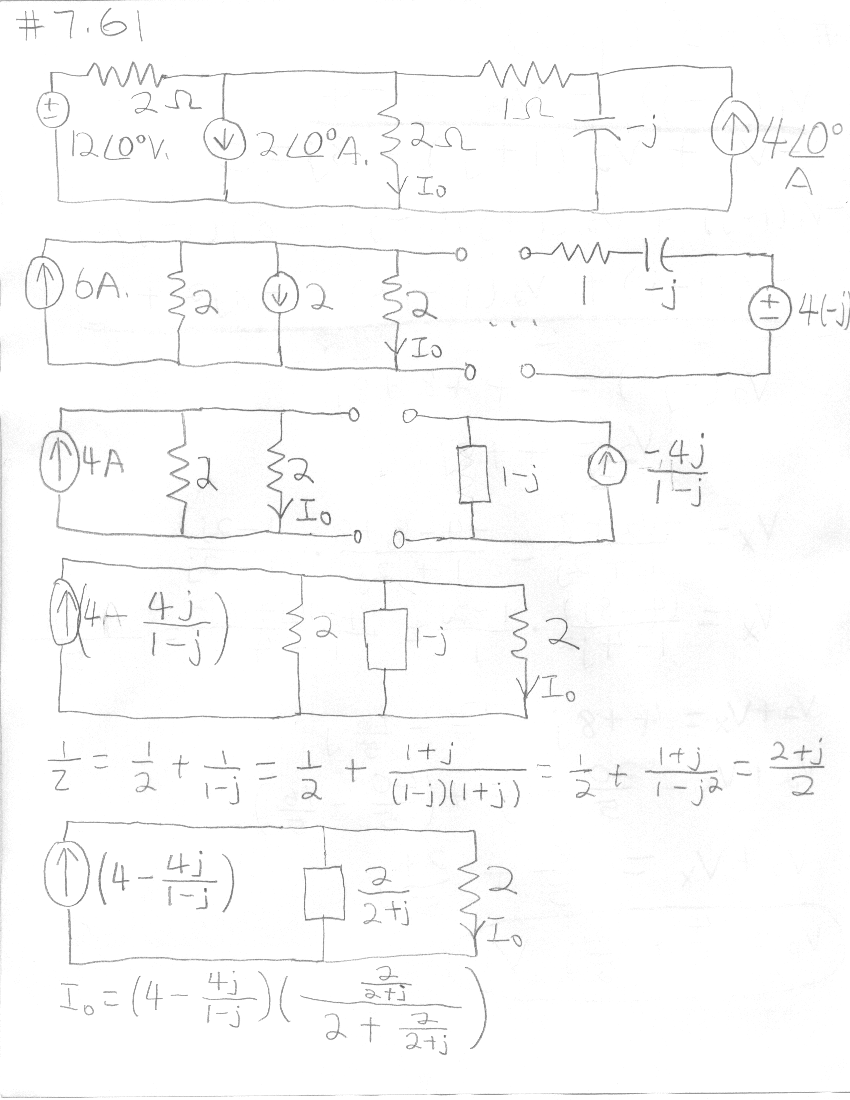 #7.61
2Ω 1Ω
12∠0°V. 2∠0°A. 2Ω -j 4∠0°
I₀ A
6A. 2 2 2 1 -j 4(-j)
I₀ ...
4A 2 2 1-j -4j/(1-j)
I₀
(4 - 4j/(1-j)) 2 1-j 2
I₀
1/Z = 1/2 + 1/(1-j) = 1/2 + (1+j)/((1-j)(1+j)) = 1/2 + (1+j)/(1-j²) = (2+j)/2
(4 - 4j/(1-j)) 2/(2+j) 2
I₀
I₀ = (4 - 4j/(1-j)) ((2/(2+j))/(2 + 2/(2+j)))